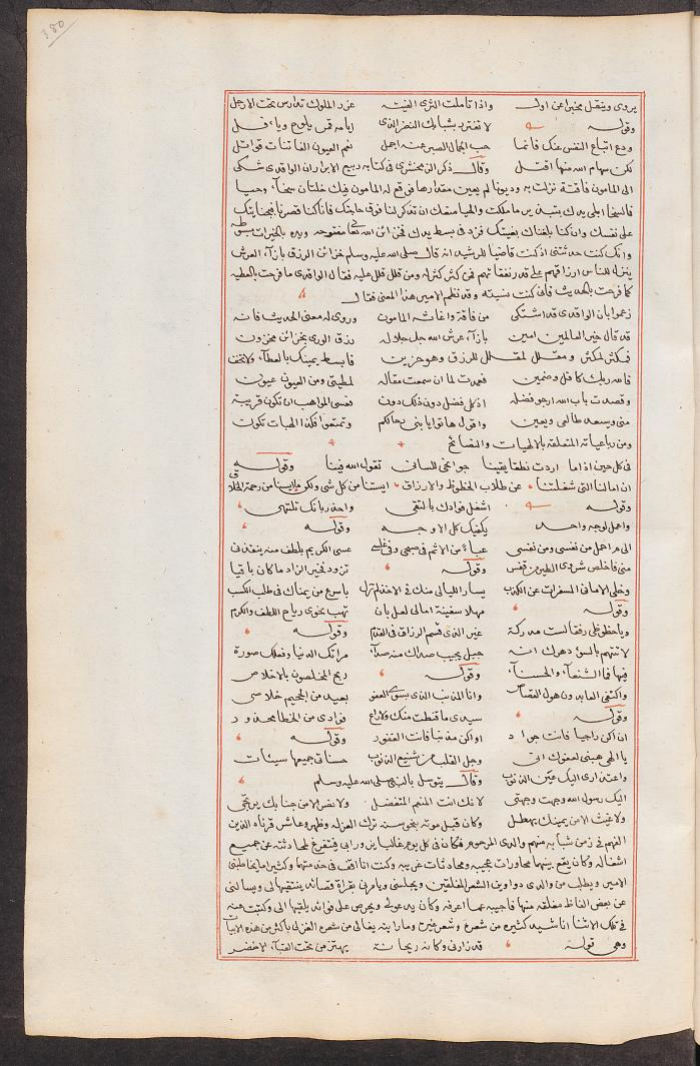 380
يروى وينقل مخبرا عن اول واذا تاملت الثرى الفيته غرر الملوك تداس تحت الارجل
وقوله لا تغترر بشبابك النضر الذى ايامه قمر يلوح ويافل
ودع اتباع النفس عنك فانما حب الجمال الصبر عنه اجمل نعم العيون الفاتنات قواتل
لكن سهام الله منها اقتل وقال ذكر الزمخشرى فى كتابه ربيع الابرار ان الواقدى شكى
الى المامون فاقة نزلت به وديونا لم يعين مقدارها فوقع له المامون فيك خلتان سخاء وحيا
فالسخا يدك بتبذير ما ملكت والحيا منعك ان تذكر لنا فوق حاجتك فان كنا قصرنا فبجنايتك
على نفسك وان كنا بلغنا بغيتك فزد فى بسط يدك فخزائن الله تعالى مفتوحه ويده بالخيرات مبسوطه
وانك كنت حدثتنى اذ كنت قاضيا للرشيد انه قال صلى الله عليه وسلم خزائن الرزق بازاء العرش
ينزل للناس ارزاقهم على قدر نفقاتهم فمن كثر كثر له ومن قلل قلل عليه فقال الواقدى ما فرحت بالعطيه
كما فرحت بالحديث فانى كنت نسيته وقد نظم الامير هذا المعنى فقال
زعموا بان الواقدى قد اشتكى من فاقة واغاثه المامون وروى له معنى الحديث فانه
قد قال خير العالمين امين بازاء عرش الله جل جلاله رزق الورى بخزائن مخزون
فمكثر لمكثر ومقلل لمقلل للرزق وهو حزين فابسط يمينك بالعطاء ولا تخف
فالله ربك كافل وضمين فعدت لما ان سمعت مقاله لمطيتى ومن العيون عيون
وقصدت باب الله ارجو فضله اذ كل فضل دون ذلك دون فعسى المواهب ان تكون قريبة
منى ويسعد طالعى ويعين واقول هاتوا يا بنى وتمتعوا فكذا الهبات تكون
ومن رباعياته المتعلقه بالالهيات والنصائح
فى كل حين اذا ما اردت نطقا يقينا جوانحى للسانى تقول الله فينا وقوله
ان امالنا التى شغلتنا عن طلاب الحظوظ والارزاق ايستنا من كل شى ولكن ما ايستنا من رحمة الخلاق
وقوله اشغل فوادك بالتقى واحذر بانك تلتهى
واعمل لوجه واحد يكفيك كل الاوجه وقوله
الى مراحل من نفسى ومن نفسى عباء من الاثم فى صبحى وفى غلسى عسى الكريم بلطف منه ينقذنى
منى فاخلص شروى الطير من قفص وقوله تزود لخير الزاد ما كان باقيا
وخلى الامانى المسفرات عن الكذب باسرع من يمناك فى طلب الكسب
وقوله مهلا سفينة امالى لعل بان تهب نحوى رياح اللطف والكرم
ويا حظوظى رفقا لست مدركة غير الذى قسم الرزاق فى القدم وقوله
لا تتهم بالسوء دهرك انه جبل يجيب صداك منه صداء مراتك الدنيا وفعلك صورة
فيها فما الشنعاء والحسناء وقوله ربح المخلصون بالاخلاص
واكتفى العابدون هول القصاص وانا المذنب الذى بسوى العفو بعيد من الجحيم خلاصى
وقوله سيدى ما قنطت منك فؤادى من الخطا محدود
ان اكن راجيا فانت جواد او اكن مذنبا فانت الغفور وقوله
يا الهى هبنى لعفوك انى وجل القلب من شنيع الذنوب حسناتى جميعها سيئات
واعتذارى اليك عين الذنوب وقال يتوسل بالنبى صلى الله عليه وسلم
اليك رسول الله وجهت وجهتى لانك انت المنعم المتفضل
ولا غيث الا من يمينك يهطل وكان قبل موته بنحو سنه ترك العزله وظهر وعاشر قرناءه الذين
الفهم فى زمن شبابه منهم والدى المرحوم فكان فى كل يوم غالبا يزور ابى فيتفرغ لمحادثته عن جميع
اشغاله وكان يقع بينهما محاورات عجيبه ومحادثات غريبه وكنت انا اقف فى خدمتهما وكثيرا ما يخاطبنى
الامير ويطلب من والدى دواوين الشعر المفلقين ويجلسنى ويامرنى بقراة وقصائد ينتقيها لى ويسالنى
عن بعض الفاظ مغلقه منها فاجيبه عما اعرفه وكان يدعو لى ويحرص على فوائد يلقيها الى وكتبت عنه
فى تلك الاثنا اناشيد كثيره من شعره وشعر غيره وما رايته يغالى من شعره الغزلى باكثر من هذه الابيات
وهى قوله قد زارنى وكانه ريحانة يهتز من تحت القباء الاخضر